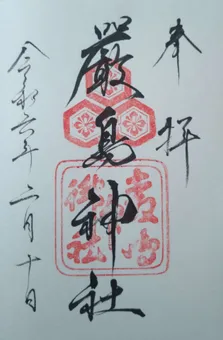 奉拝
嚴島神社
令和六年 二月十日